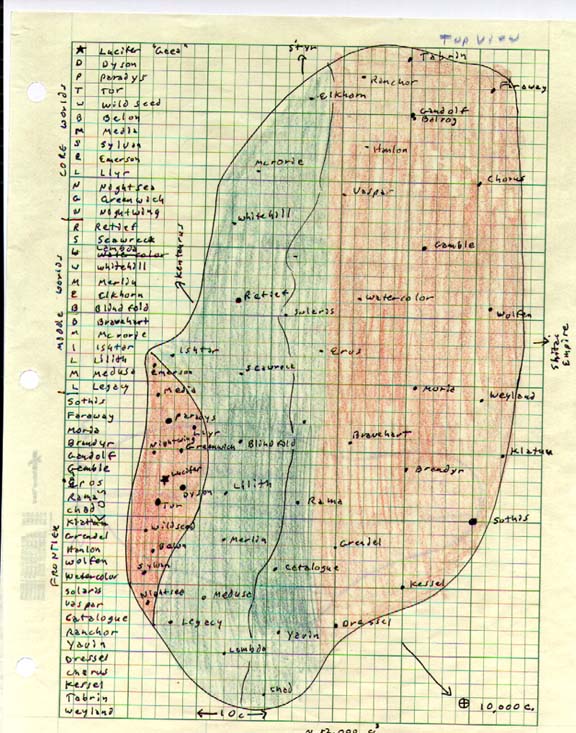 TOP VIEW
★ Lucifer "Geed"
D Dyson
P Paradys
T Tor
W Wild seed
B Belon
M Media
S Sylvan
E Emerson
L Llyr
N Nightsea
G Greenwich
N Nightwing
CORE WORLDS
R Retief
S Seawreck
Lambda
W Watercolor
W Whitehill
M Merlin
E Elkhorn
B Blindfold
B Bravehart
M McRorie
I Ishtar
L Lilith
M Medusa
L Legacy
MIDDLE WORLDS
Sothis
Faraway
Moria
Brandyr
Gandolf
Gamble
Eros
Rama
Chad
Klatuu
Grendel
Hanlon
Wolfen
Watercolor
Solaris
Vaspar
Catalogue
Ranchor
Yavin
Dressel
Chorus
Kessel
Tabrin
Weyland
FRONTIER
Styr
Akentarus
Shitai Empire
Tabrin
Ranchor
Faraway
Elkhorn
Gandolf
Balrog
Hanlon
McRorie
Chorus
Vaspar
Whitehill
Gamble
Retief
Watercolor
Solaris
Wolfen
Ishtar
Eros
Emerson
Seawreck
Media
Moria
Weyland
Paradys
Llyr
Nightwing
Greenwich
Blindfold
Bravehart
Klatuu
Lucifer
Brandyr
Dyson
Lilith
Tor
Rama
Sothis
Wildseed
Merlin
Grendel
Belon
Sylvan
Catalogue
Kessel
Nightsea
Medusa
Legacy
Yavin
Dressel
Lambda
Chad
10c
10,000 c.